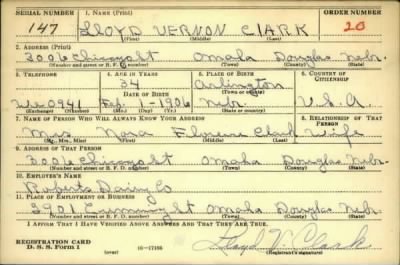 SERIAL NUMBER 1. NAME (Print) ORDER NUMBER
147 LLOYD VERNON CLARK 20
(First) (Middle) (Last)
2. ADDRESS (Print)
3006 Chicago St Omaha Douglas Nebr.
(Number and street or R. F. D. number) (Town) (County) (State)
3. TELEPHONE 4. AGE IN YEARS 5. PLACE OF BIRTH 6. COUNTRY OF CITIZENSHIP
34 Arlington
DATE OF BIRTH (Town or county)
We 0941 Feb. 1-1906 Nebr. U.S.A.
(Exchange) (Number) (Mo.) (Day) (Yr.) (State or country)
7. NAME OF PERSON WHO WILL ALWAYS KNOW YOUR ADDRESS 8. RELATIONSHIP OF THAT PERSON
Mrs Nora Florence Clark Wife
(Mr., Mrs., Miss) (First) (Middle) (Last)
9. ADDRESS OF THAT PERSON
3006 Chicago St Omaha Douglas Nebr.
(Number and street or R. F. D. number) (Town) (County) (State)
10. EMPLOYER'S NAME
Roberts Dairy Co
11. PLACE OF EMPLOYMENT OR BUSINESS
2901 Cuming St Omaha Douglas Nebr
(Number and street or R. F. D. number) (Town) (County) (State)
I AFFIRM THAT I HAVE VERIFIED ABOVE ANSWERS AND THAT THEY ARE TRUE.
REGISTRATION CARD
D. S. S. Form 1 (over) 16—17105 Lloyd V. Clark
(Registrant's signature)